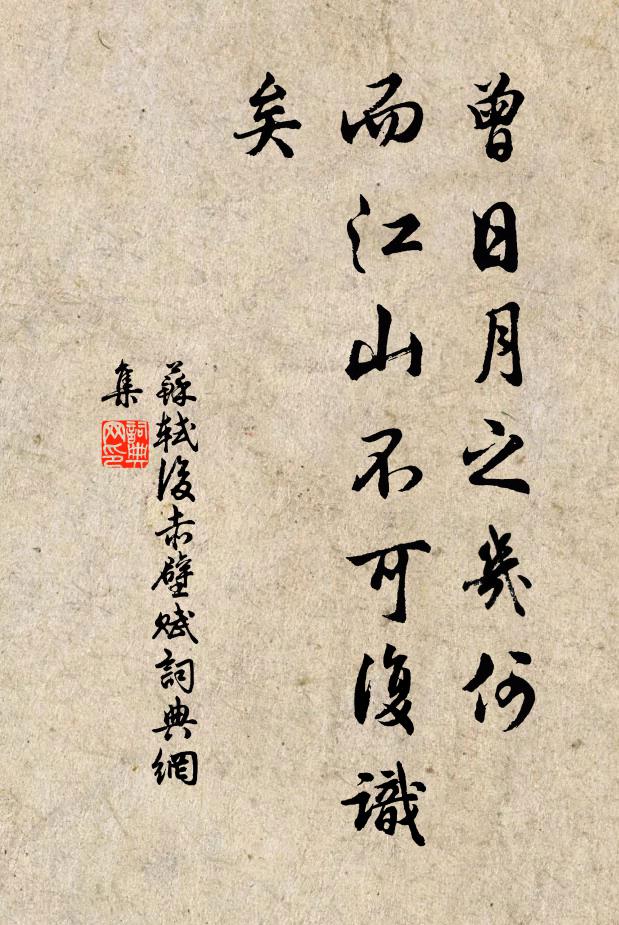 曾日月之幾何
而江山不可復識
矣
蘇軾後赤壁賦詞典網
集
詞典
网印